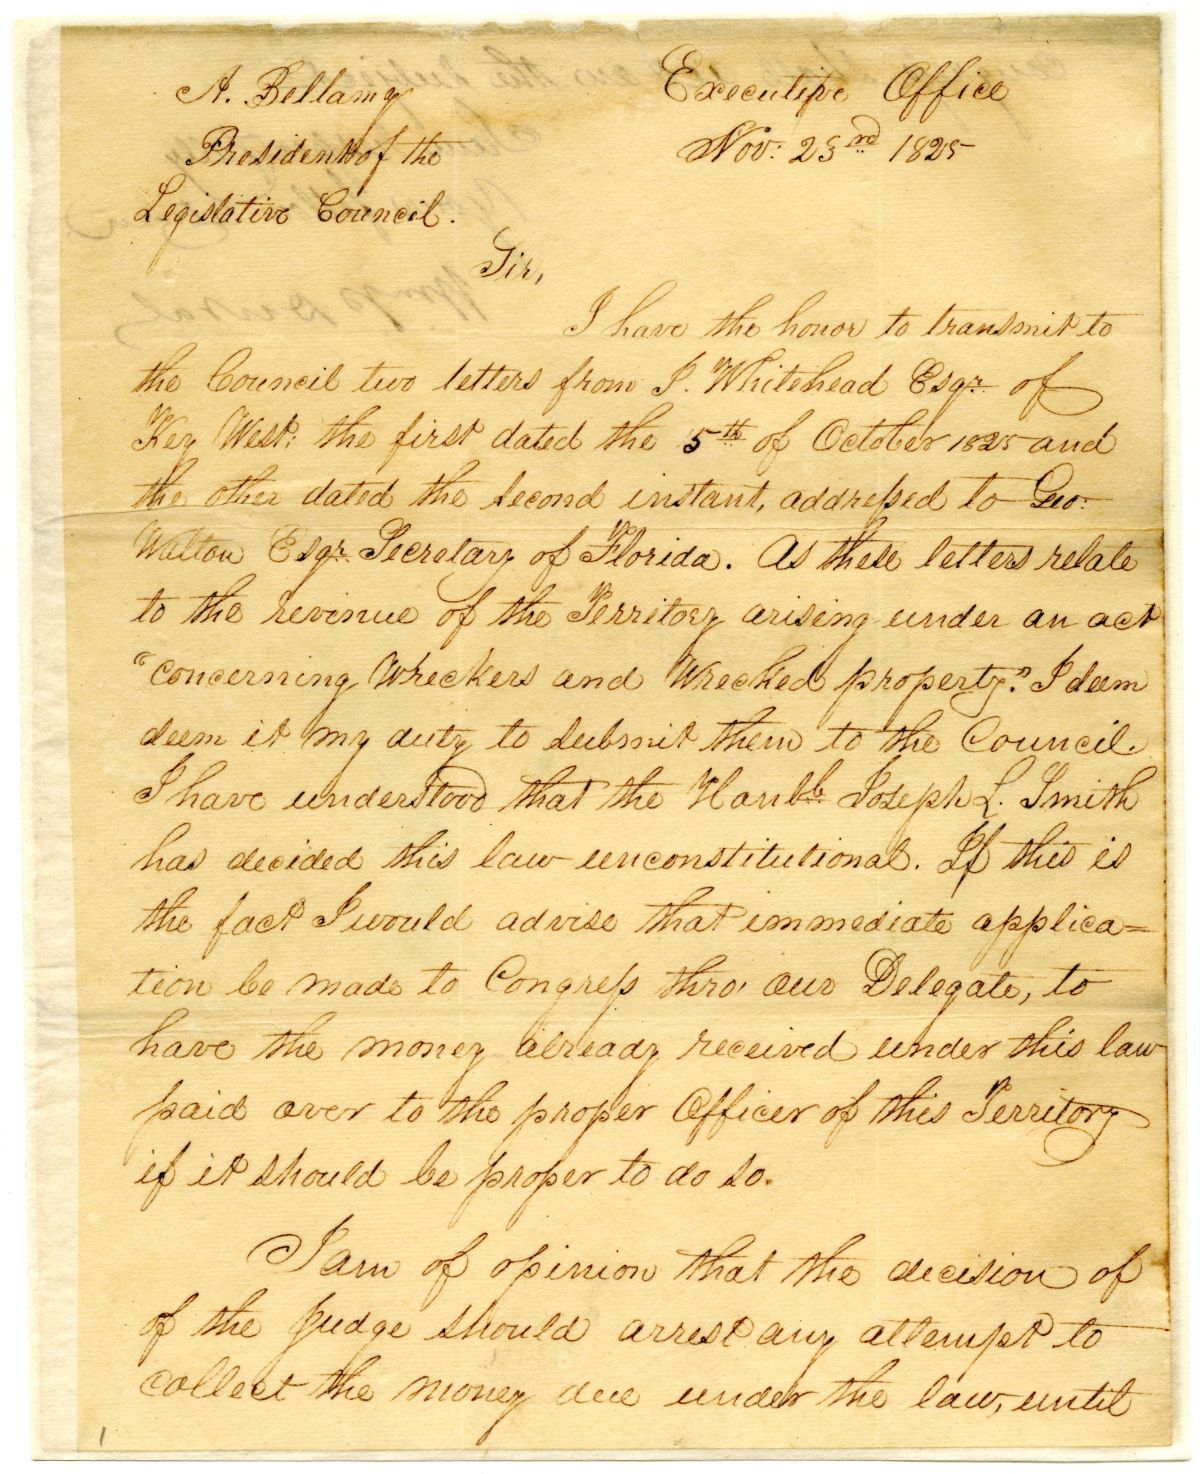 A. Bellamy
President of the
Legislative Council.
Executive Office
Nov: 23rd 1825
Sir,
I have the honor to transmit to
the Council two letters from J. Whitehead Esqr. of
Key West: the first dated the 5th of October 1825 and
the other dated the second instant, addressed to Geo:
Walton Esqr. Secretary of Florida. As these letters relate
to the revenue of the Territory arising under an act
"concerning Wreckers and Wrecked property." I deem
deem it my duty to submit them to the Council.
I have understood that the Honble. Joseph L. Smith
has decided this law unconstitutional. If this is
the fact I would advise that immediate applica=
tion be made to Congress thro' our Delegate, to
have the money already received under this law
paid over to the proper Officer of this Territory
if it should be proper to do so.
I am of opinion that the decision of
of the Judge should arrest any attempt to
collect the money due under the law, until
1